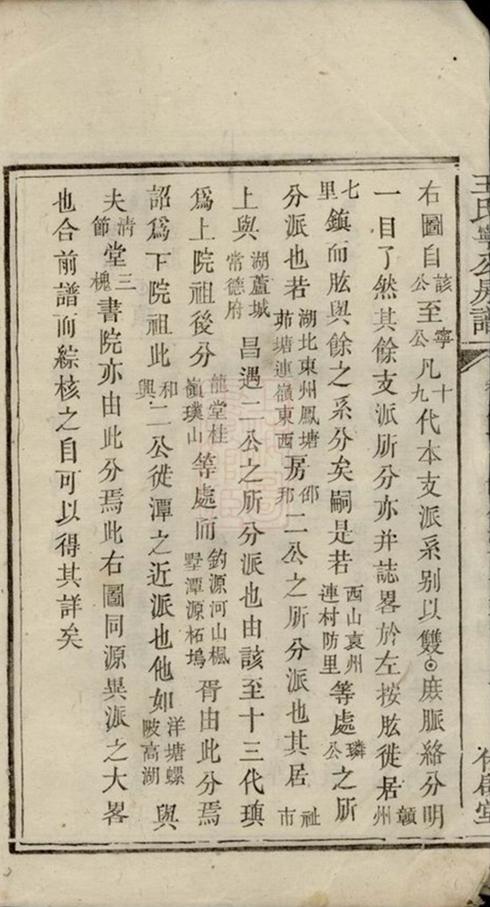 右圖自該公至寧公凡十九代本支派系别以雙⊙庶脈絡分明
一目了然其餘支派所分亦并誌畧於左按肱徙居贛州
七里鎮而肱與餘之系分矣嗣是若西山袁州連村防里等處璘公之所
分派也若湖北東州鳳塘茆塘連嶺東西房邟二公之所分派也其居社市
上與湖蘆城常德府昌遇二公之所分派也由該至十三代瑱
爲上院祖後分龍堂桂嶺璞山等處而釣源河山楓墅潭源柘塢胥由此分焉
詔爲下院祖此和興二公徙潭之近派也他如洋塘螺陂高湖與
夫清節堂三槐書院亦由此分焉此右圖同源異派之大畧
也合前譜而綜核之自可以得其詳矣
王氏寧公房譜